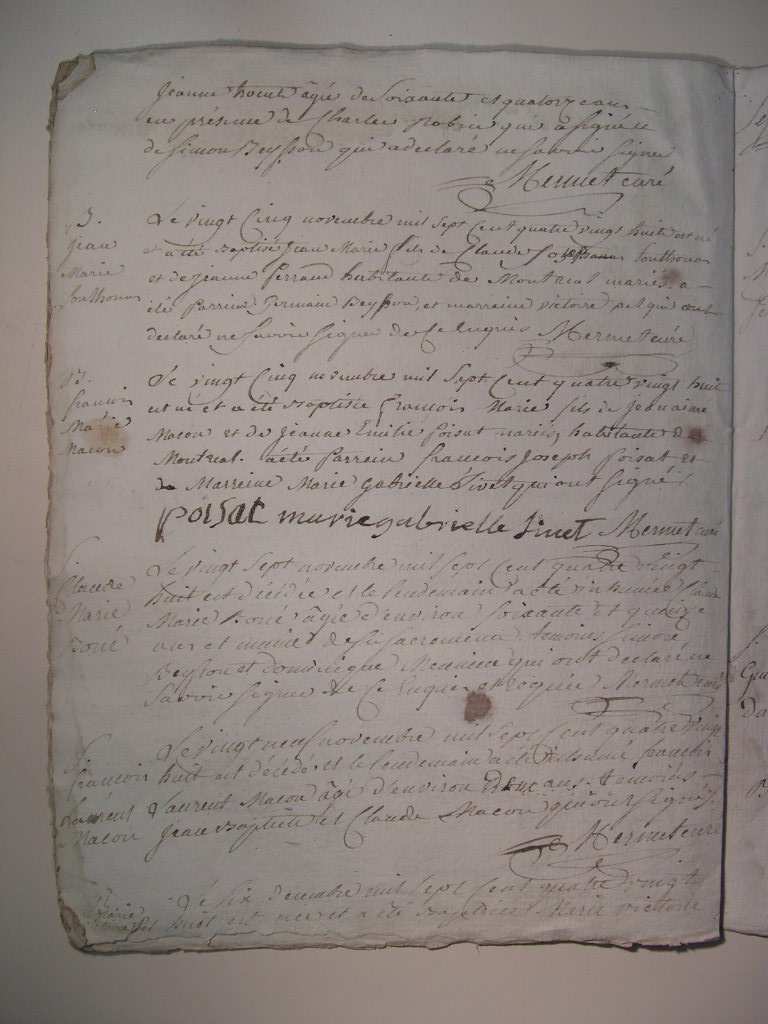 Jeanne âgée de Soixante et quatorze ans
en présence de Charles Robin qui a signé et
de Simon Beysson qui a declaré ne savoir signer
Mermet curé
Le vingt Cinq novembre mil sept Cent quatre vingt huit est né
et a été Baptisé Jean Marie fils de Claude Southonax
et de jeanne ferrand habitants de Montreal mariés, a
été Parrein Germain Beysson, et marraine victoire qui ont
declaré ne Savoir signer de Ce Enquis Mermet curé
B.
jean
Marie
Southonax
Le vingt Cinq novembre mil Sept Cent quatre vingt huit
est né et a été Baptisé françois Marie fils de
Macon et de jeanne Emilie Poisat mariés, habitants de
Montreal. a été Parrein francois Joseph Poisat et
Marreine Marie gabrielle Sivet qui ont signé
B.
francois
Marie
Macon
poisat marie gabrielle Sivet Mermet curé
Le vingt Sept novembre mil Sept Cent quatre vingt
huit est décédée et le lendemain a été inhumée Claude
Marie Boné âgée d'environ Soixante et quinze
ans et munie de ses sacremens, temoins Simon
Beysson et dominique qui ont declaré ne
Savoir Signer de Ce Enquis et requis Mermet curé
Claude
Marie
Boné
Le vingt neuf novembre mil Sept Cent quatre vingt
huit est décédé et le lendemain a été inhumé francois
Laurent Macon âgé d'environ ans, temoins
Jean Baptiste et Claude Macon qui ont signés.
francois
Laurent
Macon
Mermet curé
Le Six decembre mil Sept Cent quatre vingt
huit est née et a été Baptisée Marie victoire